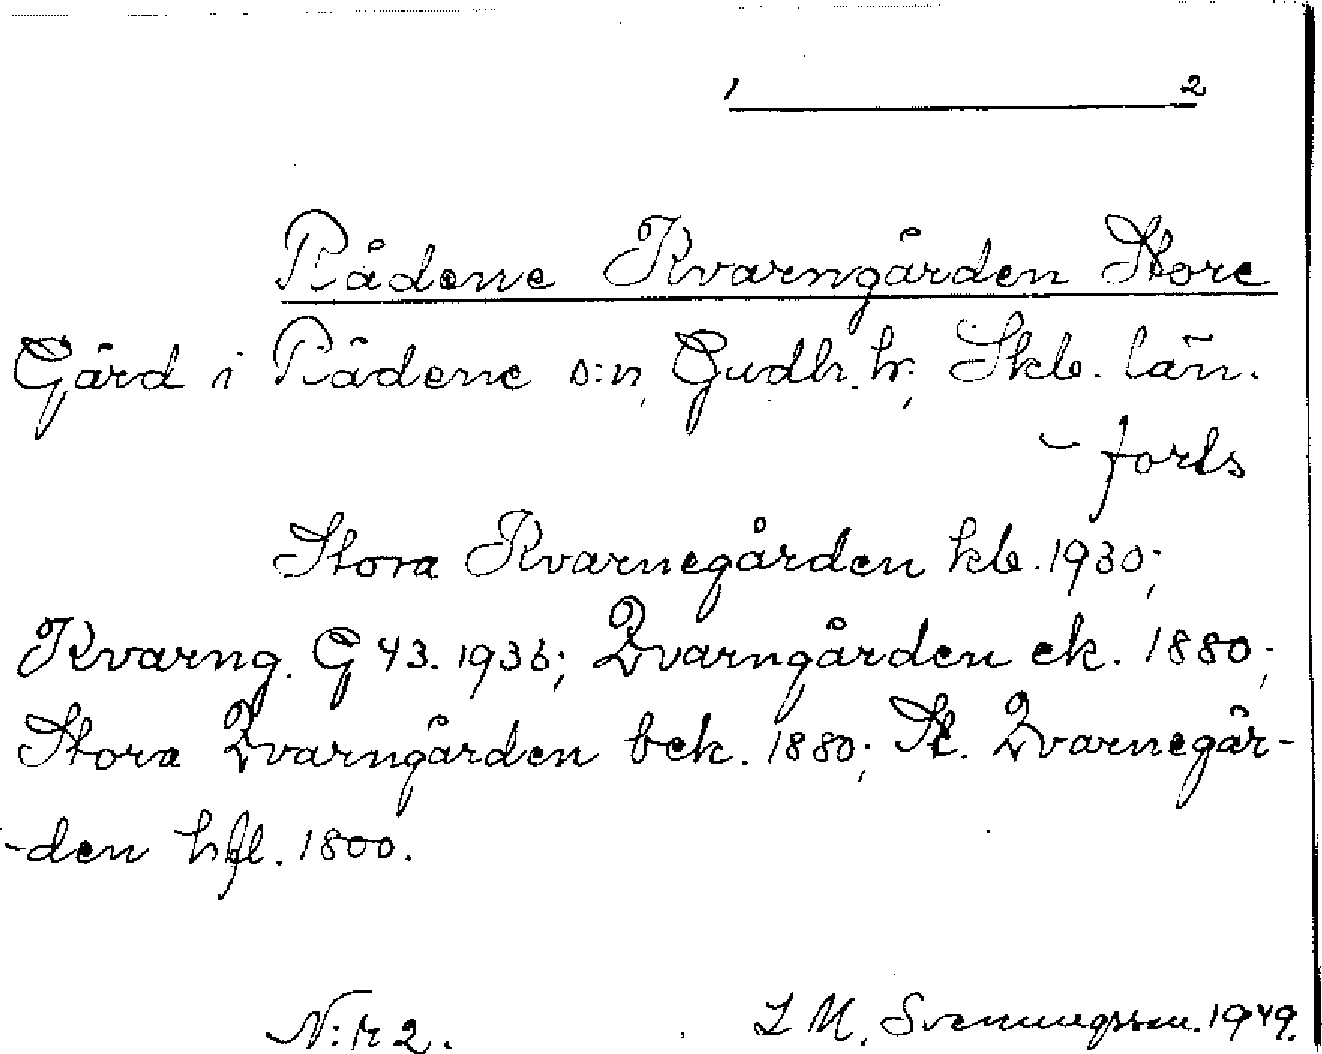 1 2
Rådene Kvarngården Store
Gård i Rådene s:n, Gudh. hr, Skb. län.
- forts
Stora Kvarnegården kb. 1930;
Kvarng. G 43. 1936; Qvarngården ek. 1880;
Stora Qvarngården bek. 1880; St. Qvarnegår-
-den hfl. 1800.
N:r 2. I M. Svenungsson. 1949.